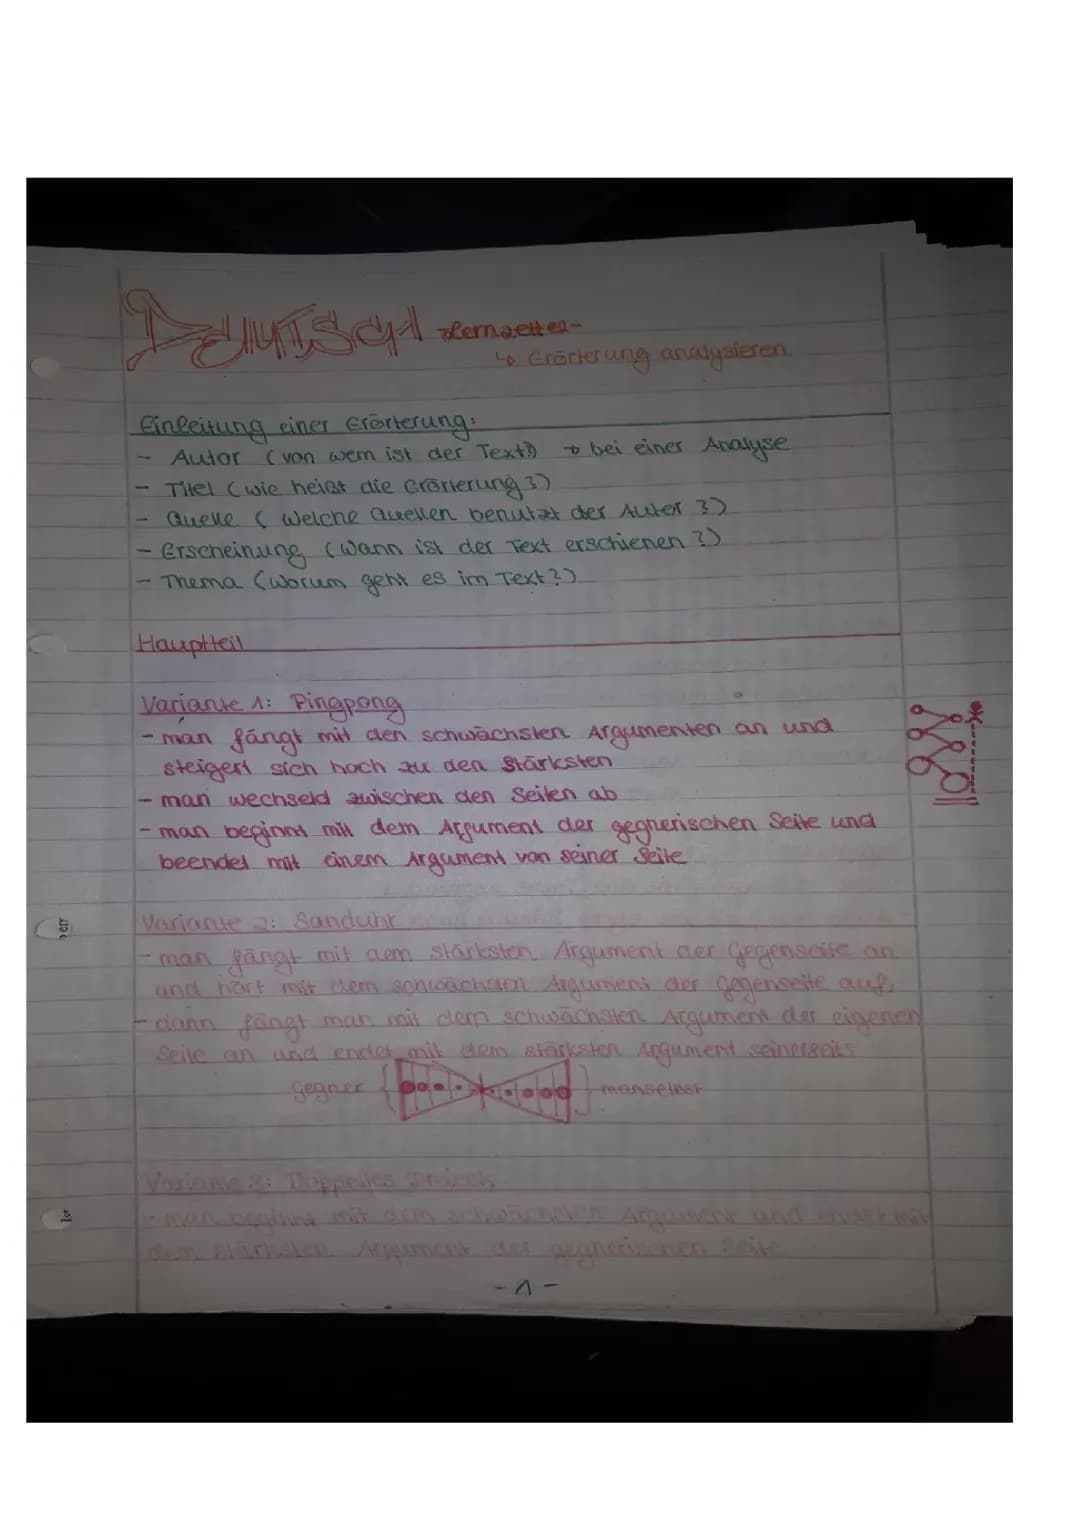 Deutsch -Lernzettel-
↳ Erörterung analysieren
Einleitung einer Erörterung:
- Autor (von wem ist der Text?) → bei einer Analyse
- Titel (wie heißt die Erörterung?)
- Quelle (Welche Quellen benutzt der Autor?)
- Erscheinung (Wann ist der Text erschienen?)
- Thema (Worum geht es im Text?)
Hauptteil
Variante 1: Pingpong
- man fängt mit den schwächsten Argumenten an und
steigert sich hoch zu den Stärksten
- man wechseld zwischen den Seiten ab
- man beginnt mit dem Argument der gegnerischen Seite und
beendet mit einem Argument von seiner Seite
Variante 2: Sanduhr
- man fängt mit dem stärksten Argument der Gegenseite an
und hört mit dem schwächsten Argument der Gegenseite auf,
- dann fängt man mit dem schwächsten Argument der eigenen
Seite an und endet mit dem stärksten Argument seinerseits
Gegner manselbst
Variante 3: Doppeltes Dreieck
- man beginnt mit dem schwächsten Argument und endet mit
dem stärksten Argument der gegnerischen Seite
- 1 -